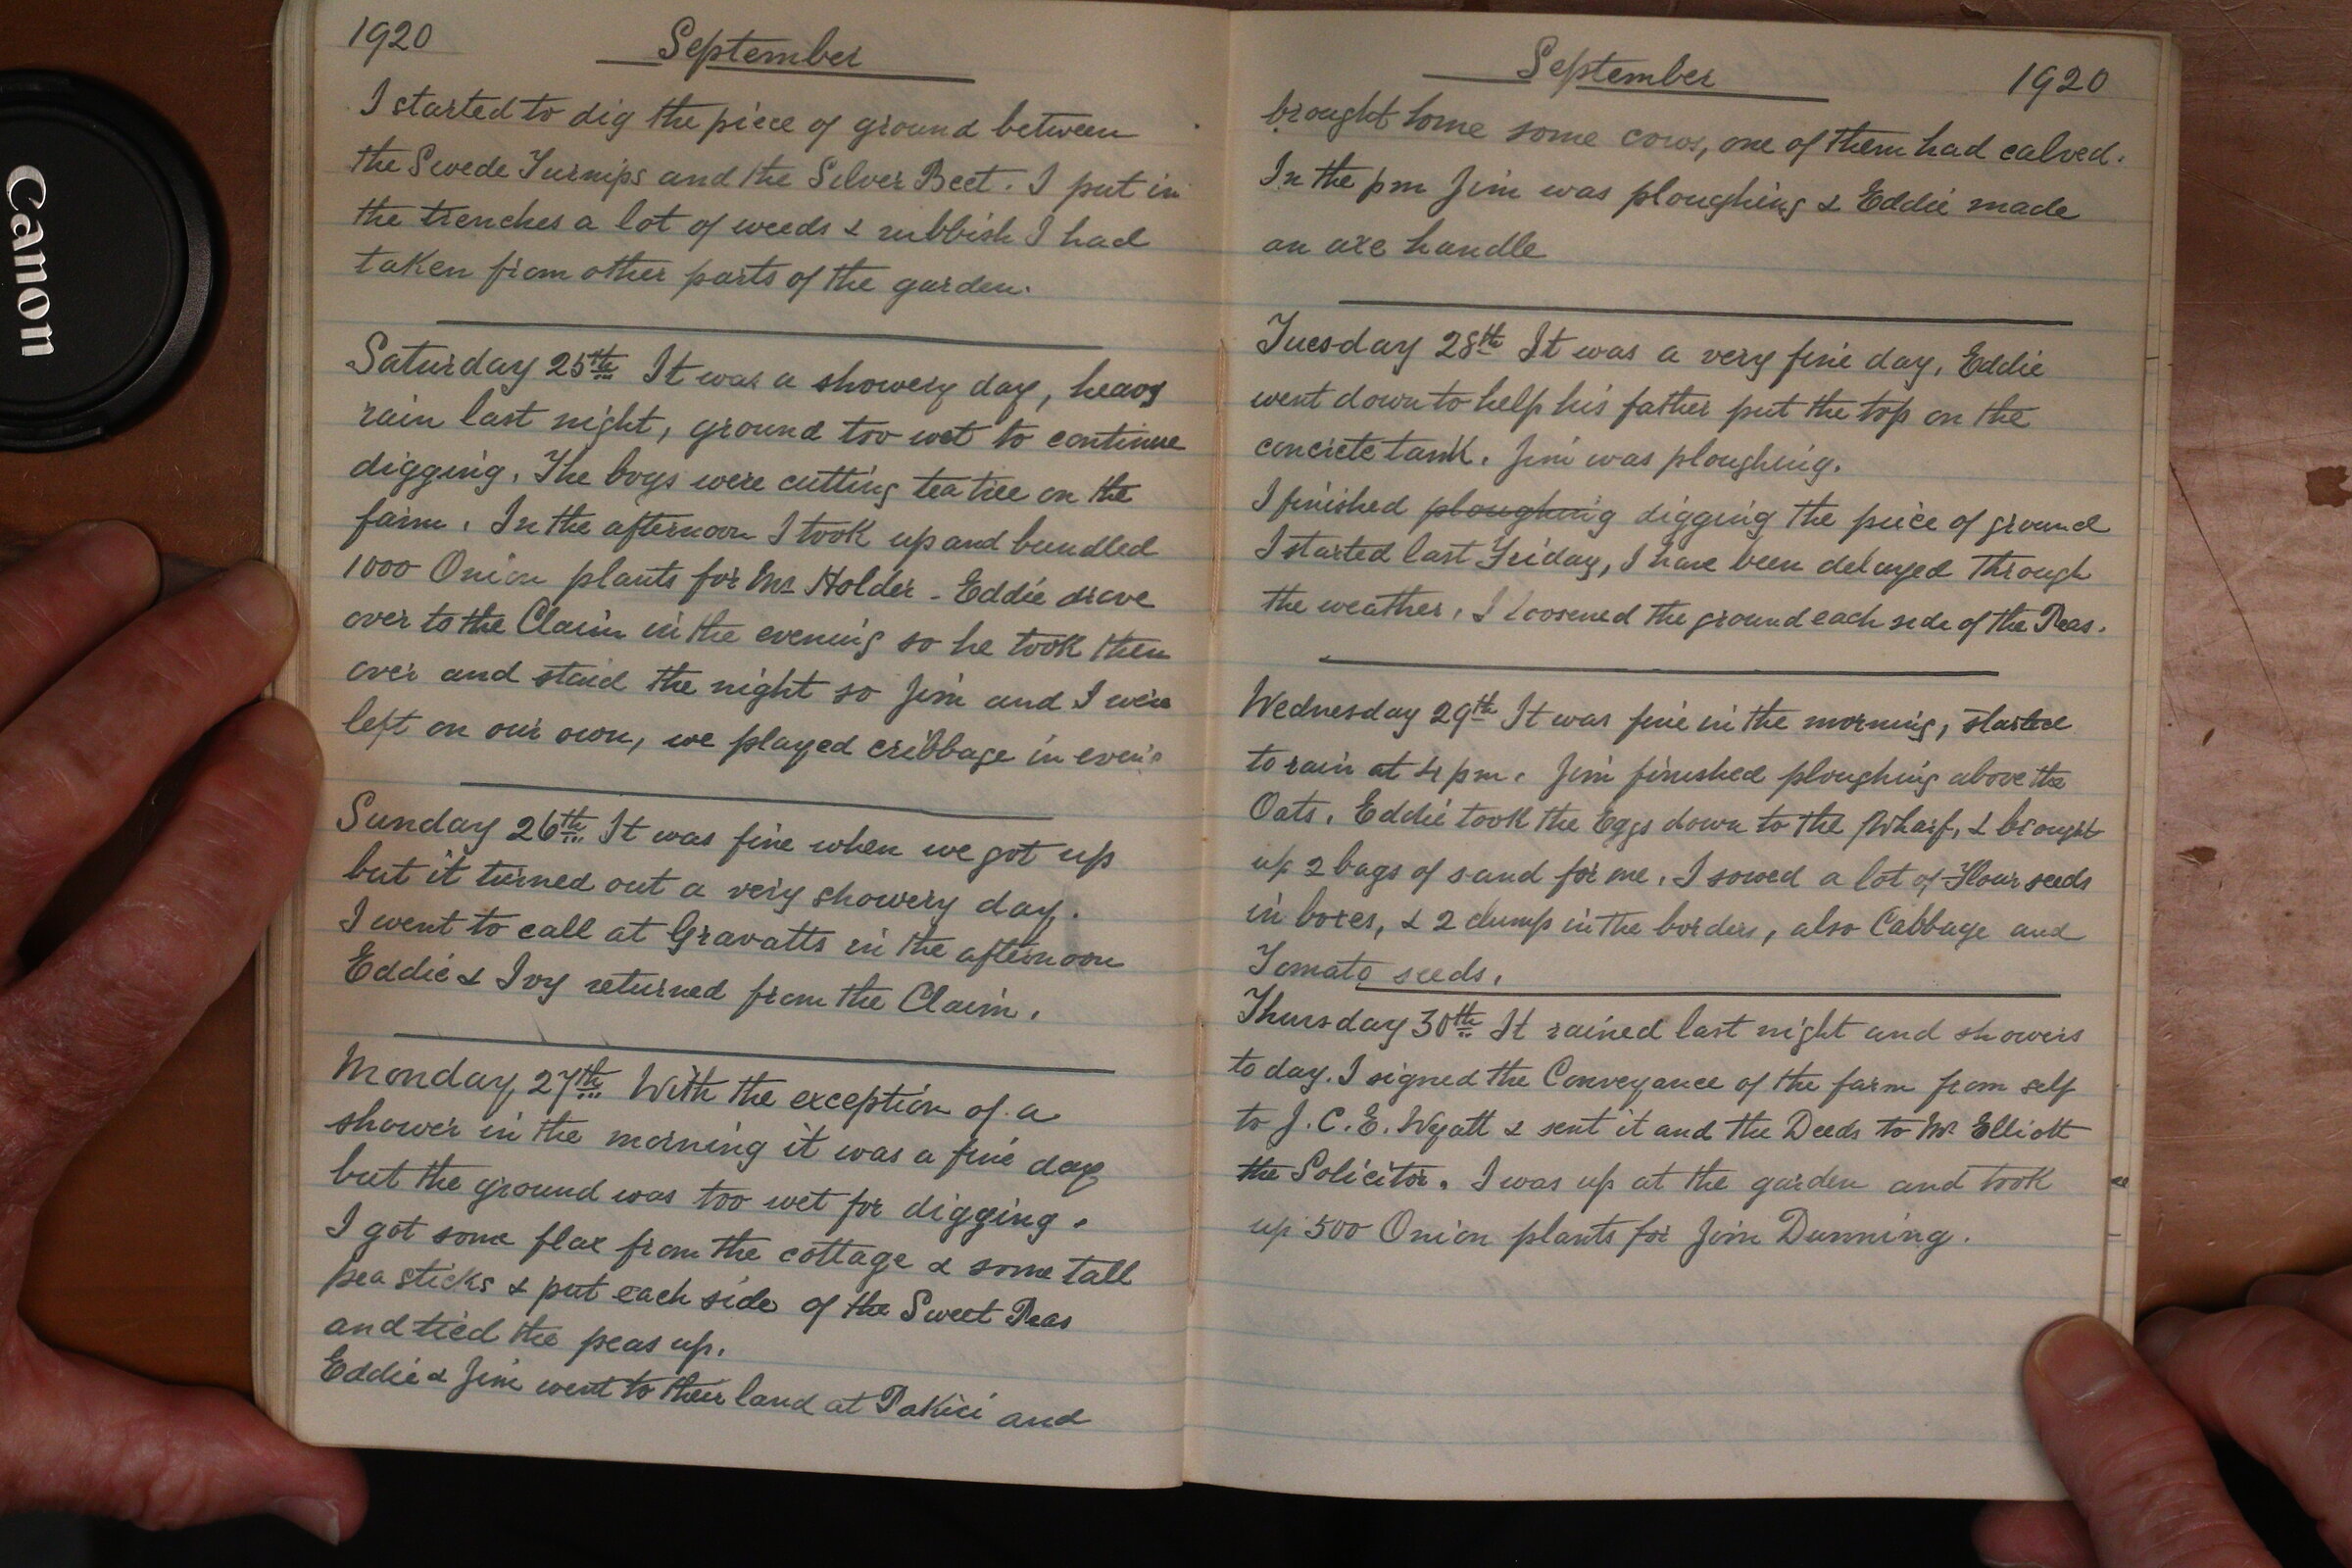 Canon
1920 September
I started to dig the piece of ground between
the Swede Turnips and the Silver Beet. I put in
the trenches a lot of weeds & rubbish I had
taken from other parts of the garden.
Saturday 25th It was a showery day, heavy
rain last night, ground too wet to continue
digging. The boys were cutting tea tree on the
farm. In the afternoon I took up and bundled
1000 Onion plants for Mr Holder - Eddie drove
over to the Claim in the evening so he took them
over and staid the night so Jim and I were
left on our own, we played cribbage in even'g
Sunday 26th It was fine when we got up
but it turned out a very showery day.
I went to call at Gravatts in the afternoon
Eddie & Ivy returned from the Claim.
Monday 27th With the exception of a
shower in the morning it was a fine day
but the ground was too wet for digging.
I got some flax from the cottage & some tall
pea sticks & put each side of the Sweet Peas
and tied the peas up.
Eddie & Jim went to their land at Pakiri and
September 1920
brought home some cows, one of them had calved.
In the pm Jim was ploughing & Eddie made
an axe handle
Tuesday 28th It was a very fine day. Eddie
went down to help his father put the top on the
concrete tank. Jim was ploughing.
I finished ploughing digging the piece of ground
I started last Friday, I have been delayed through
the weather. I loosened the ground each side of the Peas.
Wednesday 29th It was fine in the morning, started
to rain at 4 pm. Jim finished ploughing above the
Oats. Eddie took the Eggs down to the Wharf, & brought
up 2 bags of sand for me. I sowed a lot of Flour seeds
in boxes, & 2 clumps in the borders, also Cabbage and
Tomato seeds.
Thursday 30th It rained last night and showers
to day. I signed the Conveyance of the farm from self
to J. C. E. Wyatt & sent it and the Deeds to Mr Elliott
the Solicitor. I was up at the garden and took
up 500 Onion plants for Jim Dunning.